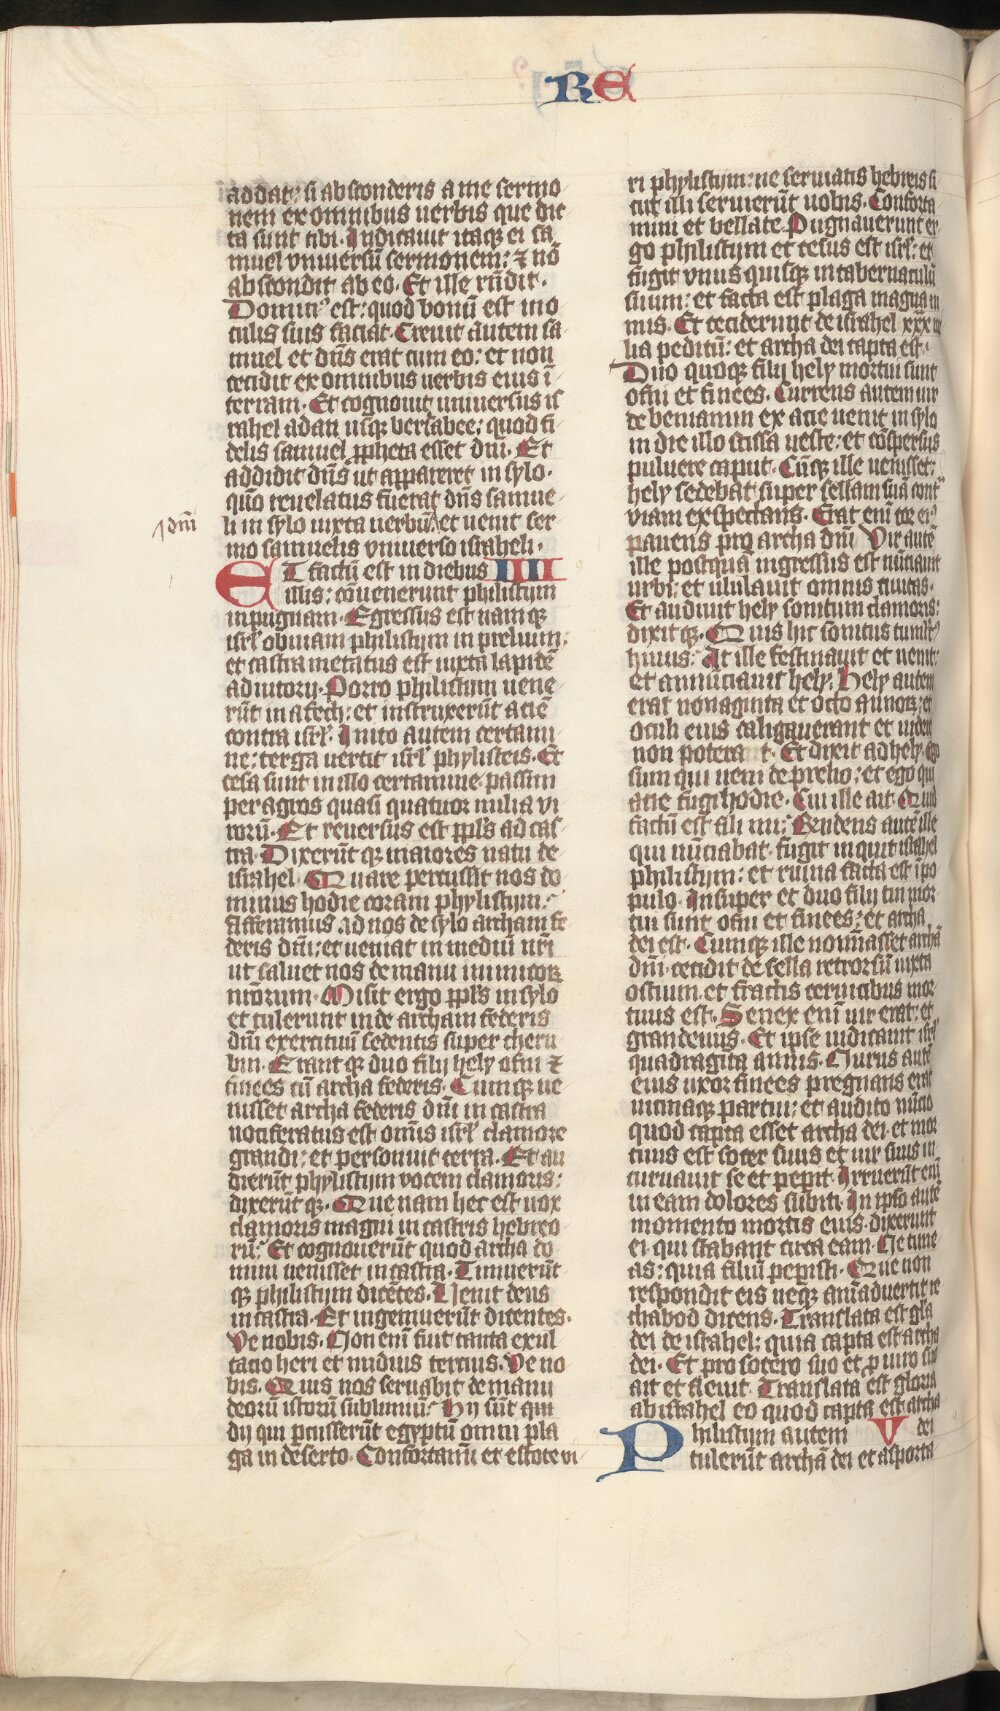 RE
addat: si absconderis a me sermo
nem ex omnibus uerbis que dic
ta sunt tibi. Indicauit itaqȝ ei sa
muel vniuersū sermonem: ⁊ nō
abscondit ab eo. Et ille rn̄dit.
Dominꝰ est: quod bonū est in o
culis suis faciat. Creuit autem sa
muel et dn̄s erat cum eo: et non
cecidit ex omnibus uerbis eius ī
terram. Et cognouit vniuersus is
rahel a dan usqȝ bersabee: quod fi
delis samuel ꝓpheta esset dn̄i. Et
addidit dn̄s ut appareret in sylo.
qūo reuelatus fuerat dn̄s samue
li in sylo iuxta uerbū et uenit ser
dn̄i
mo samuelis vniuerso israheli.
ET factū est in diebus IIII
illis: cōuenerunt philistijm
in pugnam. Egressus est nam qȝ
isrl̄ obuiam philistijm in prelium:
et castra metatus est iuxta lapidē
adiutorij. Porro philistijm uene
rūt in afech: et instruxerūt aciē
contra isrl̄. Inito autem certami
ne: terga uertit isrl̄ phylisteis. Et
cesa sunt in illo certamine passim
per agros quasi quatuor milia vi
rorū. Et reuersus est ppl̄s ad cas
tra. Dixerūt qȝ maiores natu de
israhel. Quare percussit nos do
minus hodie coram phylistijm.
Afferamus ad nos de sylo archam fe
deris dn̄i: et ueniat in mediū nr̄i
ut saluet nos de manu inimicoꝝ
nr̄orum. Misit ergo ppl̄s in sylo
et tulerunt inde archam federis
dn̄i exercituū sedentis super cheru
bin. Erant qȝ duo filij hely ofni ⁊
finees cū archa federis. Cumqȝ ue
nisset archa federis dn̄i in castra
uociferatus est omīs isrl̄ clamore
grandi: et personuit terra. Et au
dierūt phylistijm vocem clamoris:
dixerūt qȝ. Que nam hec est uox
clamoris magni in castris hebreo
rū: Et cognouerūt quod archa do
mini uenisset in castra. Timuerūt
qȝ philistijm dicētes. Uenit deus
in castra. Et ingemuerūt dicentes.
Ve nobis. Non enī fuit tanta exul
tacio heri et nudius tercius. Ve no
bis. Quis nos seruabit de manu
deorū istorū sublimiū: Hij sūt qui
dij qui ꝑcusserūt egyptū omni pla
ga in deserto. Confortamī et estote vi
ri phylistijm: ne seruiatis hebreis si
cut illi seruierūt uobis. Conforta
mini et bellate. Pugnauerunt er
go philistijm et cesus est isrl̄: et
fugit vnus quisqȝ in tabernaculū
suum: et facta est plaga magna ni
mis. Et ceciderunt de israhel xxx mi
lia peditū: et archa dei capta est.
Duo quoqȝ filij hely mortui sunt
ofni et finees. Currens autem uir
de beniamin ex acie uenit in sylo
in die illo scissa ueste: et cōspersus
puluere caput. Cūqȝ ille uenisset:
hely sedebat super sellam suā cont
viam exspectans. Erat eni cor eiꝰ
pauens pro archa dn̄i. Vir autē
ille postquā ingressus est nūciauit
urbi: et ululauit omnis ciuitas.
Et audiuit hely sonitum clamoris:
dixit qȝ. Quis hic sonitus tumltꝰ
huius: At ille festinauit et uenit:
et annūciauit hely. Hely autem
erat nonaginta et octo annoꝝ: et
oculi eius caligauerant et uider
non potera t. Et dixit ad hely. Ego
sum qui ueni de prelio: et ego qui
acie fugi hodie. Cui ille ait. Quid
factū est fili mi: Rn̄dens autē ille
qui nūciabat. fugit inquit israhel
philistijm: et ruina facta est ī po
pulo. Insuper et duo filij tui mor
tui sunt ofni et finees: et archa
dei est. Cumqȝ ille nomīasset archā
dn̄i. cecidit de sella retrorsū iuxta
ostium. et fractis ceruicibus mor
tuus est. Senex enī uir erat: et
grandeuus. Et ipse iudicauit isrl̄
quadraginta annis. Nurus autē
eius uxor finees pregnans erat
uicinaqȝ partui: et audito nūcio
quod capta esset archa dei. et mor
tuus est socer suus et uir suus in
curuauit se et peperit. Irruerūt enī
in eam dolores subiti. In ipso autē
momento mortis eius. dixerunt
ei qui stabant circa eam. Ne time
as: quia filiū peperisti. Que non
respondit eis neqȝ animaduertit ic
chabod dicens. Translata est gl̄a
dei de israhel: quia capta est archa
dei. Et pro socero suo et ꝓ uiro suo
ait et fleuit. Translata est gloria
ab israhel eo quod capta est archa
dei
Philistijm autem V
tulerūt archā dei et asporta